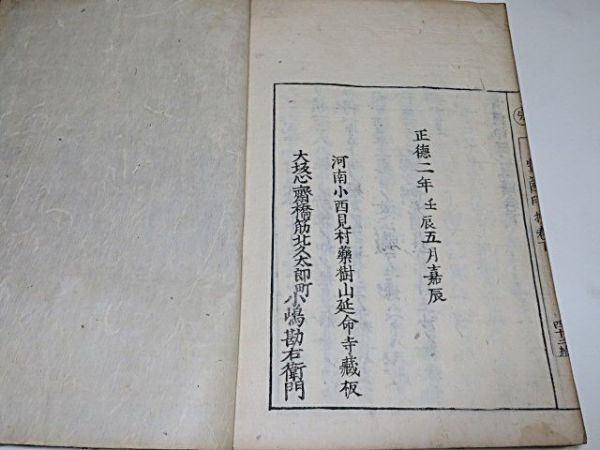 正德二年壬辰五月嘉辰
河南小西見村藥樹山延命寺藏板
大坂心齋橋筋北久太郎町小嶋勘右衛門